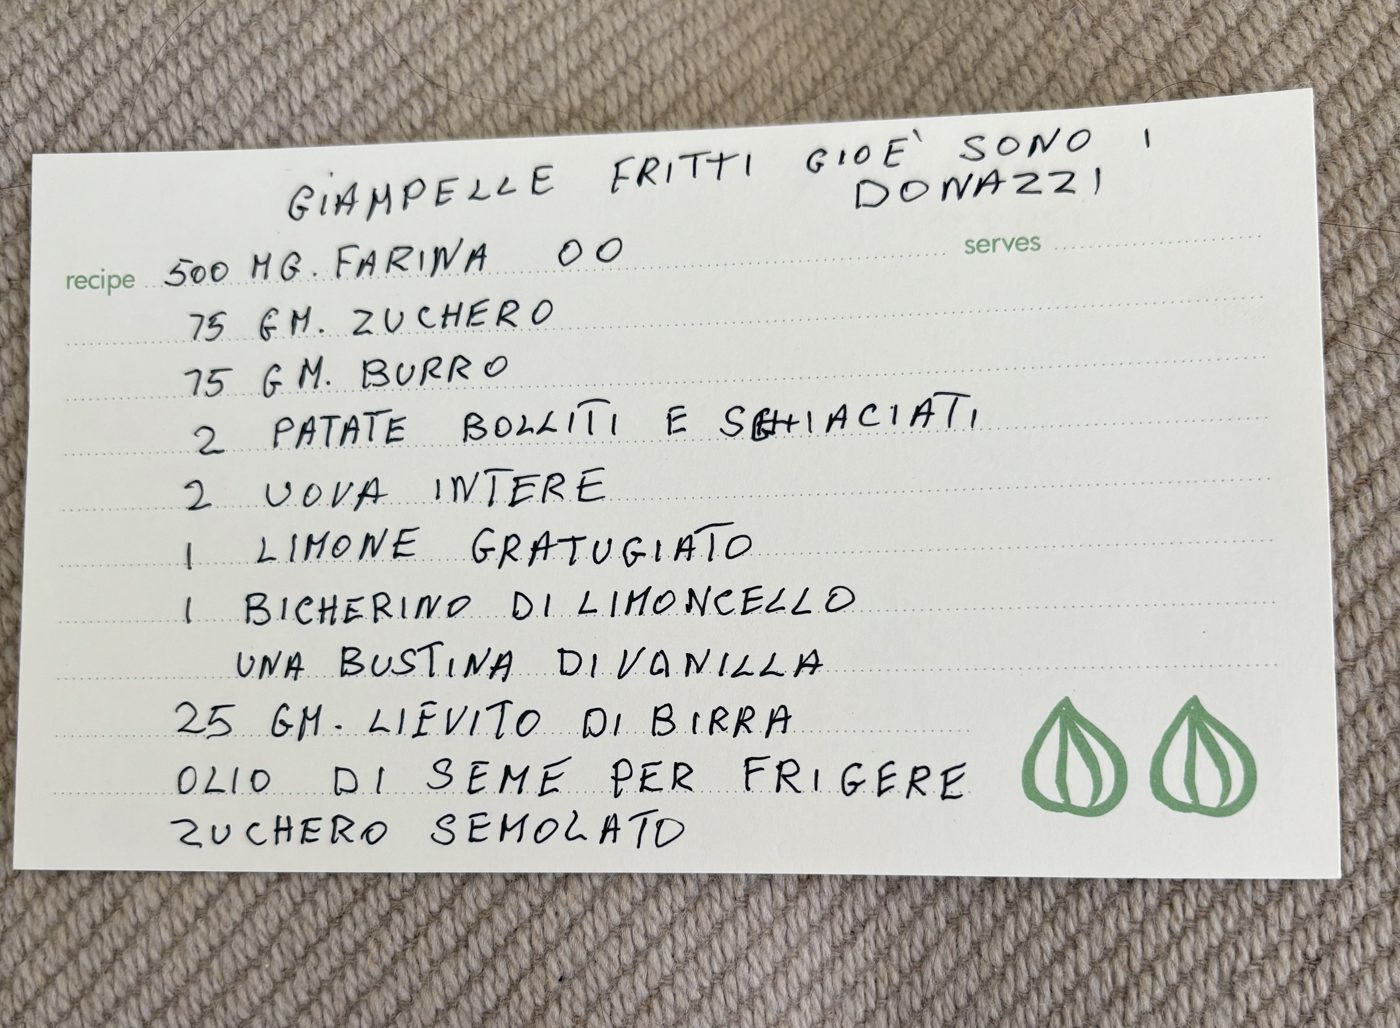 GIAMPELLE FRITTI GIOE' SONO I
DONAZZI
serves
recipe 500 MG. FARINA 00
75 GM. ZUCHERO
75 GM. BURRO
2 PATATE BOLLITI E SCHIACIATI
2 UOVA INTERE
1 LIMONE GRATUGIATO
1 BICHERINO DI LIMONCELLO
UNA BUSTINA DI VANILLA
25 GM. LIEVITO DI BIRRA
OLIO DI SEME PER FRIGERE
ZUCHERO SEMOLATO